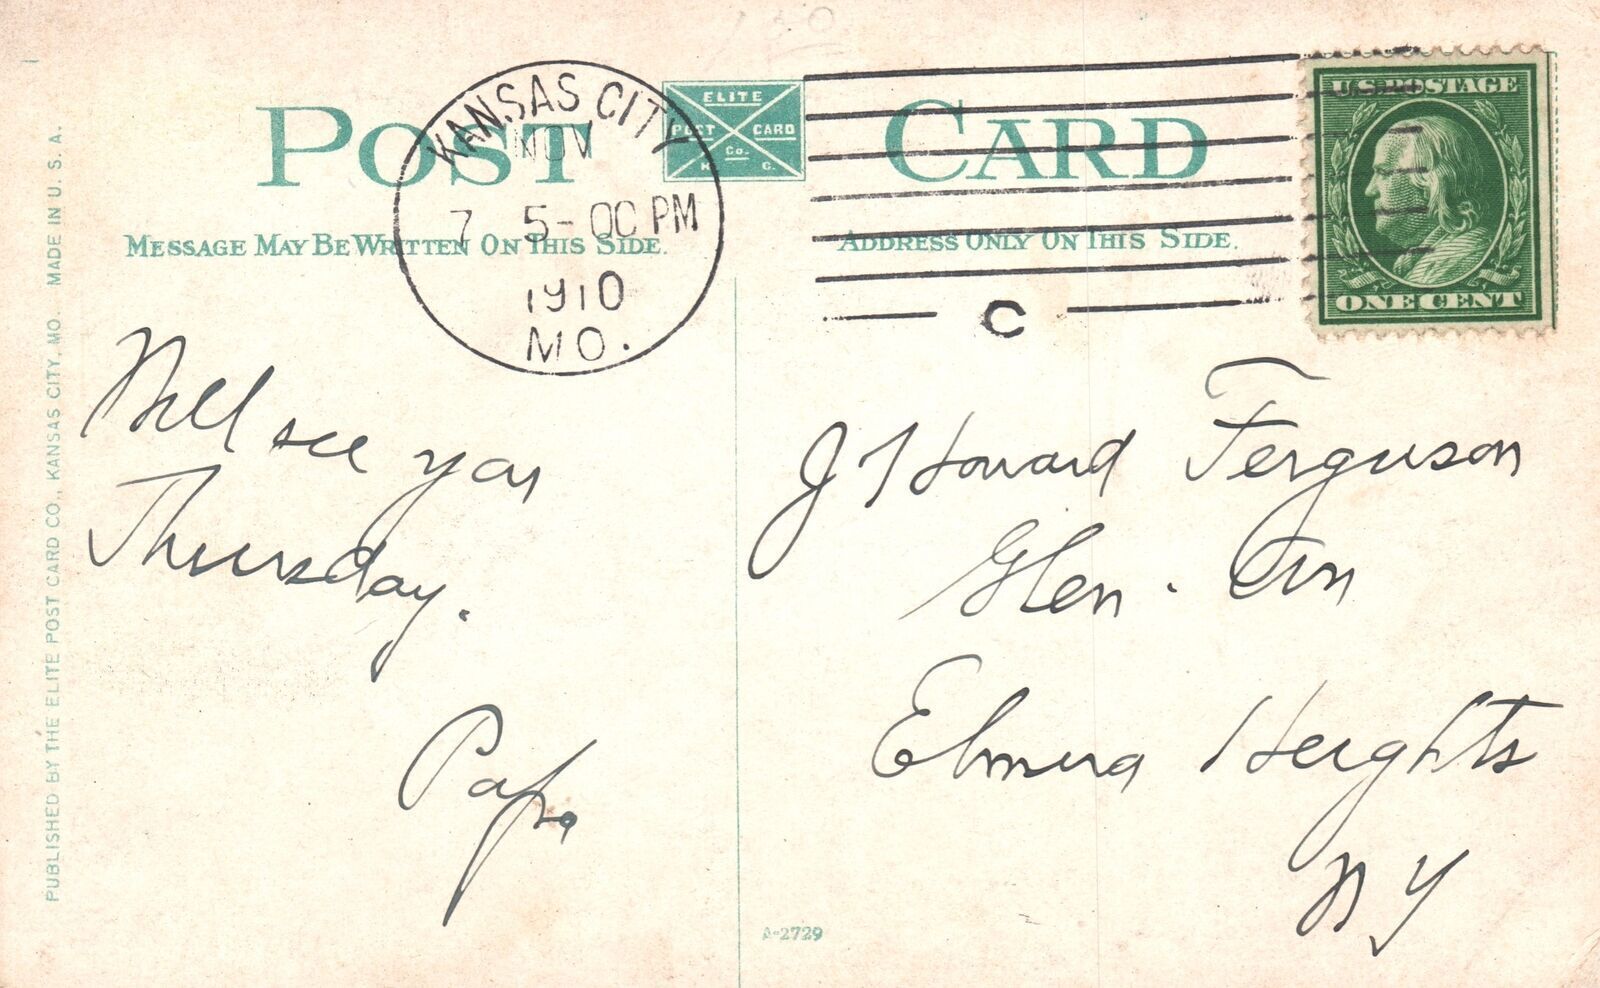 POST CARD
ELITE
POST CARD
Co.
K. C.
KANSAS CITY
NOV
7 5-00 PM
1910
MO.
C
U.S. POSTAGE
ONE CENT
MESSAGE MAY BE WRITTEN ON THIS SIDE.
ADDRESS ONLY ON THIS SIDE.
Will see you
Thursday.
Papa
J Howard Ferguson
Glen. Avn
Elmira Heights
N Y
A-2729
PUBLISHED BY THE ELITE POST CARD CO., KANSAS CITY, MO. MADE IN U. S. A.